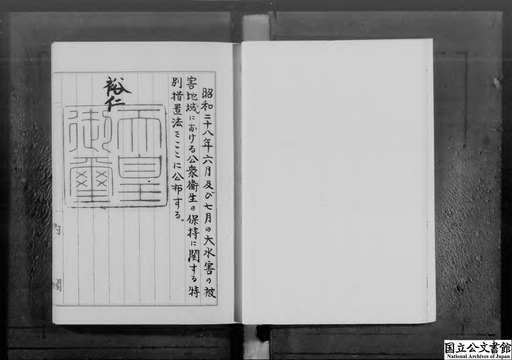 昭和二十八年六月及び七月の大水害の被
害地域における公衆衛生の保持に関する特
別措置法をここに公布する。
裕仁
天皇
御璽
国立公文書館
National Archives of Japan